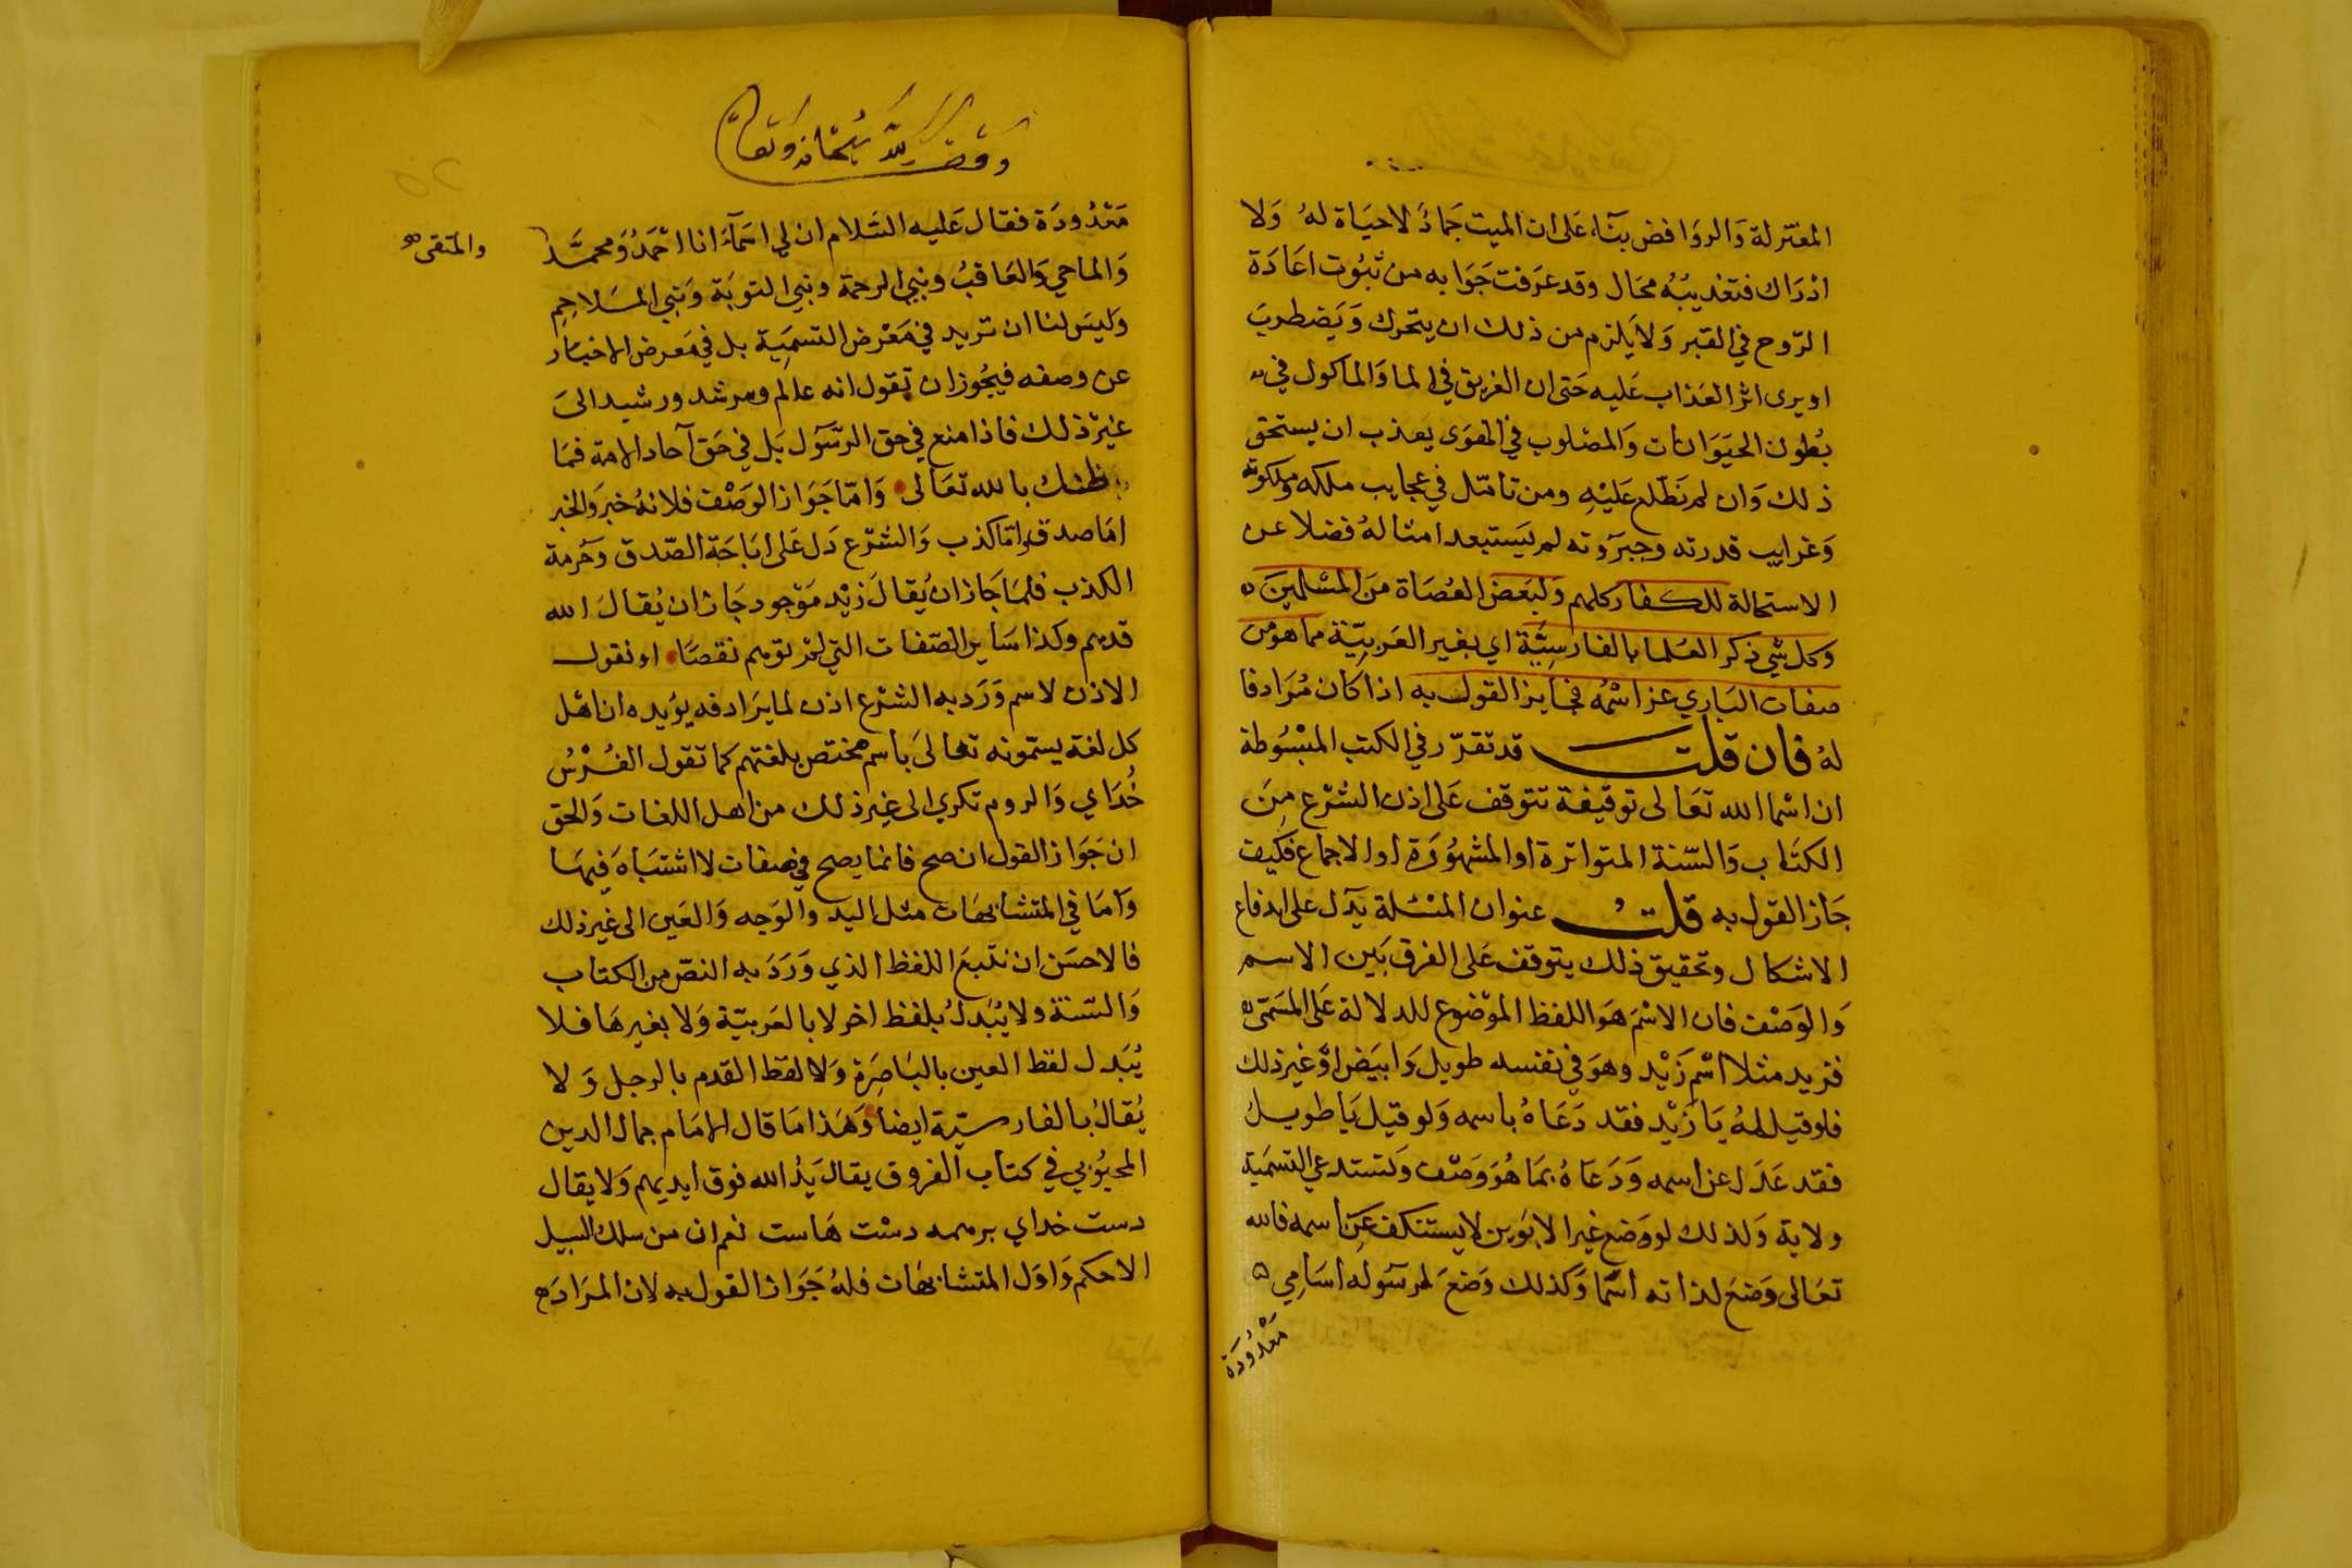 المعتزلة وَالروَافض بنَآء عَلى ان الميت جَمادٌ لا حيَاة لهُ وَلا
ادرَاك فتعذيبُهُ محَال وقد عَرَفت جَوَابه من ثبُوت اعَادَة
الرّوح في القبر وَلا يَلزم من ذلك ان يتحرك وَيَضطربَ
او يرى اثر العَذاب عَليه حَتى ان الغريق في الما وَالماكول في
بُطون الحيَوَانات وَالمصْلوب في الهوَى يعذب ان يستحق
ذلك وَان لم نَطّلع عَليْهِ ومن تامّل في عجايب ملكه وملكوته
وَغرايب قدرته وجبرَوته لم يَستبعد امثالهُ فضلا عن
الاستحالة للكفار كلهم وَلبَعض العُصَاة منَ المسْلمينَ ه
وَكل شي ذكر العُلما بالفارسِيَّة اي بغير العَربيّة مما هو من
صفات البَاري عز اسْمُه فجَايز القول به اذا كان مُرَادفا
لهُ فان قلت قد تقرّر في الكتب المبْسُوطة
ان اسْما الله تعَالى توقيفة تتوقف عَلى اذن الشرْع مِنَ
الكتَاب وَالسّنة المتواترة او المشهُوْرَة او الاجماع فكيف
جَاز القول به قلتُ عنوان المسْئلة يدَل على اندفاع
الاشكال وتحقيق ذلك يتوقف عَلى الفرق بَين الاسم
وَالوَصْف فان الاسْمَ هَو اللفظ الموْضوع للدلالة عَلى المسَمّى
فزيد مثلا اسْم زَيْد وهوَ في نفسه طويل وَابيَض اوْ غير ذلك
فلو قيل لهُ يَا زَيْد فقد دَعَاهُ باسمه وَلو قيل يَا طويل
فقد عَدَل عن اسمه وَدَعَاهُ بمَا هُوَ وَصْف وَتستدعي التسمَية
ولاية وَلذلك لو وَضع غير الابَوين لا يستنكف عَن اسمه فالله
تعَالى وَضعَ لذاته اسْما وَكذلك وَضعَ لرسوله اسَامِي ه
مَعْدُودَة
ووقف لله سبحانه وتعالى
مَعْدُودَة فقال عَليه السَّلام ان لي اسَمآءَ انا احْمَدُ وَمحمَّد
والمتقى صح
وَالماحي وَالعَاقبُ ونبي الرحمة ونبي التوبَة وَنبي المسَلاحِمِ
وَليسَ لنا ان نزيد في مَعْرض التسمَية بل في مَعرض الاخبَار
عن وصفه فيجُوز ان نقول انه عالم ومرشد ورشيد الىَ
غيرْ ذلك فاذا منع في حق الرسَّول بَل في حَق آحاد الامة فمَا
ظنك بالله تعَالى وَامّا جَوَاز الوَصْف فلانهُ خبر وَالخبر
امَا صدق وامّا كذب وَالشرْع دَل عَلى ابَاحَة الصّدق وَحُرمة
الكذب فلمَا جَاز ان يُقالَ زيْد مَوْجود جَاز ان يُقالَ الله
قديم وكذا سَاير الصّفات التي لمْ توهم نقصًا او نقول
الاذن لاسم وَرَد به الشرْع اذن لما يرَادفه يؤيده ان اهْل
كل لغة يسمّونه تعالىَ باسم مختص بلغتهم كما تقول الفُرْسُ
خُدَاي وَالروم تكري الى غير ذلك من اهل اللغات وَالحق
ان جَوَاز القول ان صح فانما يصح في صفات لا اشتبَاهَ فيهَا
وَامَا في المتشابهَات مثل اليد والوَجه وَالعَين الى غير ذلك
فالاحسَن ان نتبعَ اللفظ الذي وَرَدَ به النصّ من الكتاب
وَالسّنة ولا يُبَدلُ بلفظ اخر لا بالعَربيّة وَلا بغيرهَا فلا
يُبَدل لفظ العين بالبَاصِرَة وَلا لفظ القدم بالرجل وَلا
يُقالُ بالفارسيّة ايضا وَهَذا مَا قال الامَام جمال الدين
المحبُوْبي في كتاب الفروق يقال يَدُ الله فوق ايديهم وَلا يقال
دست خداي بر همه دسْت هَاست نعم ان من سلك السبيل
الاحكم وَاوّل المتشابهَات فلهُ جَوَاز القول به لان المرَاد ح